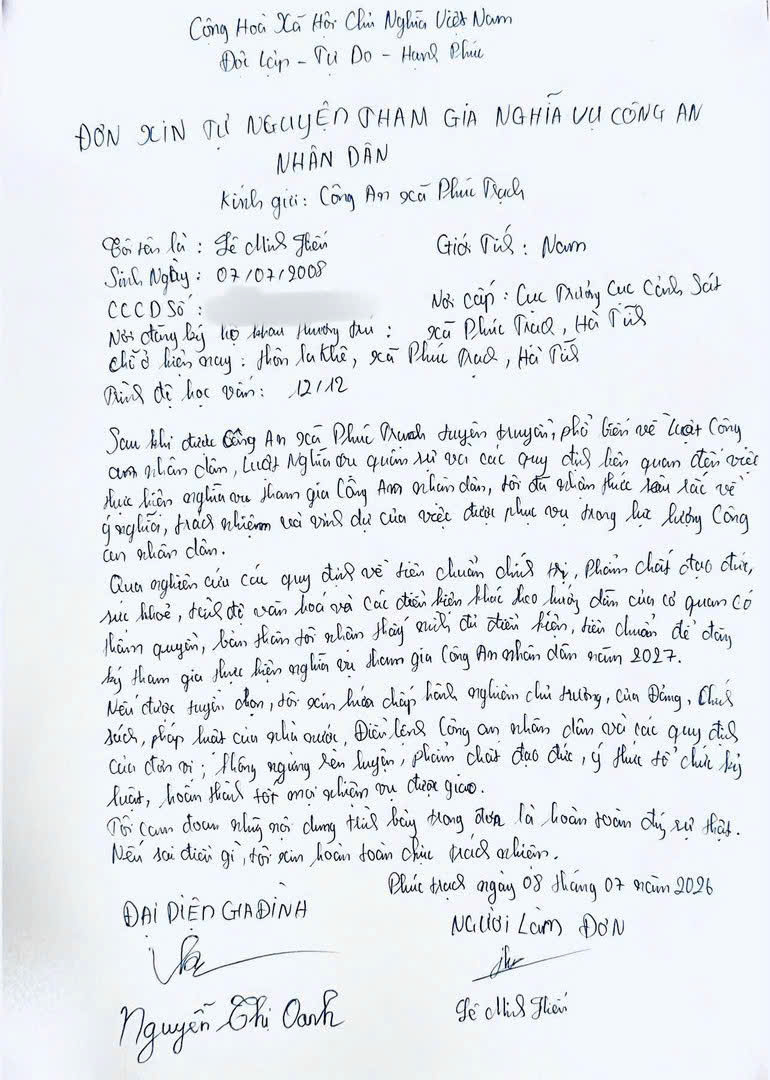 Cộng Hoà Xã Hội Chủ Nghĩa Việt Nam
Độc Lập - Tự Do - Hạnh Phúc
ĐƠN XIN TỰ NGUYỆN THAM GIA NGHĨA VỤ CÔNG AN
NHÂN DÂN
Kính gửi: Công An xã Phúc Trạch
Tôi tên là : Lê Minh Hiếu
Giới Tính : Nam
Sinh Ngày : 07/07/2008
CCCD Số :
Nơi cấp : Cục Trưởng Cục Cảnh Sát
Nơi đăng ký hộ khẩu thường trú : xã Phúc Trạch, Hà Tĩnh
Chỗ ở hiện nay : thôn La Khê, xã Phúc Trạch, Hà Tĩnh
Trình độ học vấn : 12/12
Sau khi được Công An xã Phúc Trạch tuyên truyền, phổ biến về Luật Công
an nhân dân, Luật Nghĩa vụ quân sự và các quy định liên quan đến việc
thực hiện nghĩa vụ tham gia Công An nhân dân, tôi đã nhận thức sâu sắc về
ý nghĩa, trách nhiệm và vinh dự của việc được phục vụ trong lực lượng Công
an nhân dân.
Qua nghiên cứu các quy định về tiêu chuẩn chính trị, Phẩm chất đạo đức,
sức khoẻ, trình độ văn hoá và các điều kiện khác theo hướng dẫn của cơ quan có
thẩm quyền, bản thân tôi nhận thấy mình đủ điều kiện, tiêu chuẩn để đăng
ký tham gia thực hiện nghĩa vụ tham gia Công An nhân dân năm 2027.
Nếu được tuyển chọn, tôi xin hứa chấp hành nghiêm chủ trương, của Đảng, Chính
sách, pháp luật của nhà nước, Điều lệnh Công an nhân dân và các quy định
của đơn vị ; không ngừng rèn luyện, phẩm chất đạo đức, ý thức tổ chức kỷ
luật, hoàn thành tốt mọi nhiệm vụ được giao.
Tôi cam đoan những nội dung trình bày trong đơn là hoàn toàn đúng sự thật.
Nếu sai điều gì, tôi xin hoàn toàn chịu trách nhiệm.
Phúc trạch ngày 08 tháng 07 năm 2026
ĐẠI DIỆN GIA ĐÌNH
NGƯỜI LÀM ĐƠN
Nguyễn Thị Oanh
Lê Minh Hiếu